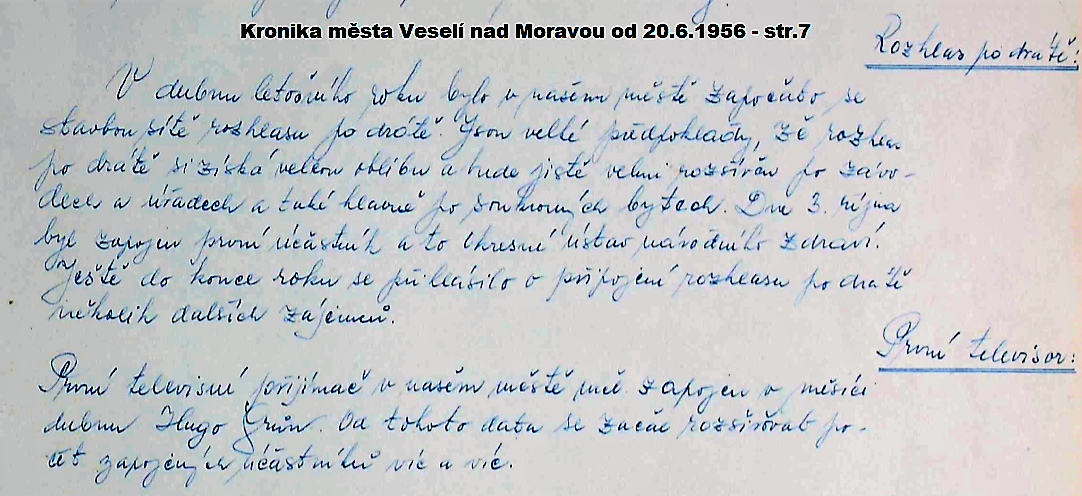 Kronika města Veselí nad Moravou od 20.6.1956 - str.7
Rozhlas po drátě:
V dubnu letošního roku bylo v našem městě započato se
stavbou sítě rozhlasu po drátě. Jsou velké předpoklady, že rozhlas
po drátě si získá velkou oblibu a bude jistě velmi rozšířen po závo-
dech a úřadech a také hlavně po soukromých bytech. Dne 3. října
byl zapojen první účastník a to Okresní ústav národního zdraví.
Ještě do konce roku se přihlásilo o připojení rozhlasu po drátě
několik dalších zájemců.
První televisor:
První televisní přijímač v našem městě měl zapojen v měsíci
dubnu Hugo Grün. Od tohoto data se začal rozšiřovat po-
čet zapojených účastníků víc a víc.